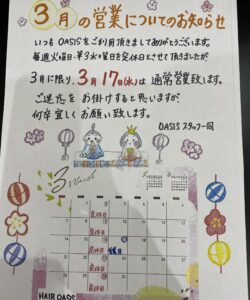 3月の営業についてのお知らせ
いつも OASISをご利用頂きましてありがとうございます。
毎週火曜日・第3水曜日を定休日とさせて頂きましたが
3月に限り、3月17日(水)は 通常営業致します。
ご迷惑を お掛けすると思いますが
何卒宜しくお願い致します。
OASIS スタッフ一同
3 March
HAIR OASIS